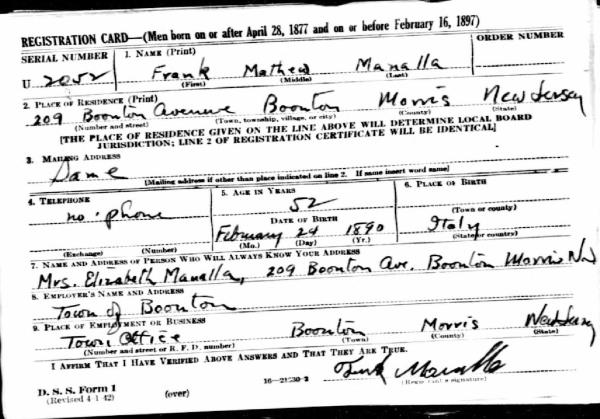 REGISTRATION CARD—(Men born on or after April 28, 1877 and on or before February 16, 1897)
SERIAL NUMBER 1. NAME (Print) ORDER NUMBER
U 2052 Frank Mathew Manalla
(First) (Middle) (Last)
2. PLACE OF RESIDENCE (Print)
209 Boonton Avenue Boonton Morris New Jersey
(Number and street) (Town, township, village, or city) (County) (State)
[THE PLACE OF RESIDENCE GIVEN ON THE LINE ABOVE WILL DETERMINE LOCAL BOARD
JURISDICTION; LINE 2 OF REGISTRATION CERTIFICATE WILL BE IDENTICAL]
3. MAILING ADDRESS
Same
[Mailing address if other than place indicated on line 2. If same insert word same]
4. TELEPHONE 5. AGE IN YEARS 6. PLACE OF BIRTH
no phone 52
DATE OF BIRTH (Town or county)
February 24 1890 Italy
(Exchange) (Number) (Mo.) (Day) (Yr.) (State or country)
7. NAME AND ADDRESS OF PERSON WHO WILL ALWAYS KNOW YOUR ADDRESS
Mrs. Elizabeth Manalla, 209 Boonton Ave. Boonton Morris NJ
8. EMPLOYER'S NAME AND ADDRESS
Town of Boonton
9. PLACE OF EMPLOYMENT OR BUSINESS
Town Office Boonton Morris New Jersey
(Number and street or R. F. D. number) (Town) (County) (State)
I AFFIRM THAT I HAVE VERIFIED ABOVE ANSWERS AND THAT THEY ARE TRUE.
Frank Manalla
D. S. S. Form 1 16—21630-2 (Registrant's signature)
(Revised 4-1-42) (over)